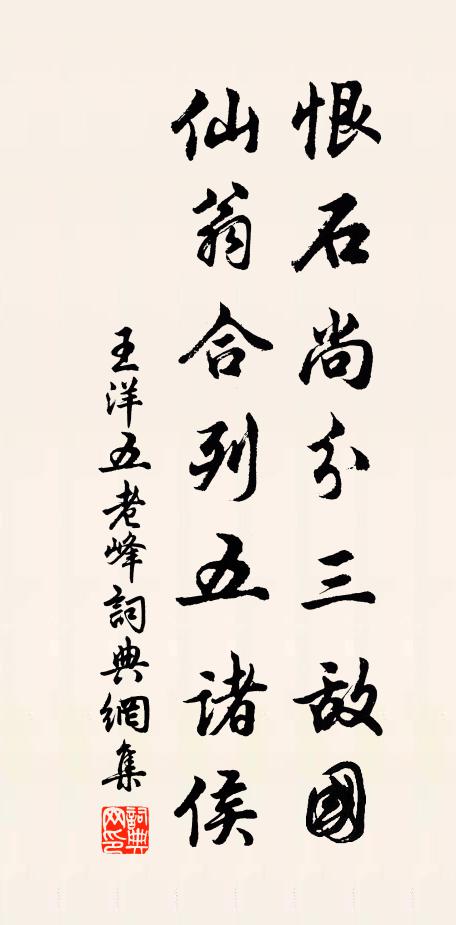 恨石尚分三敌國
仙翁合列五诸侯
王洋五老峰詞典網集
詞典網印